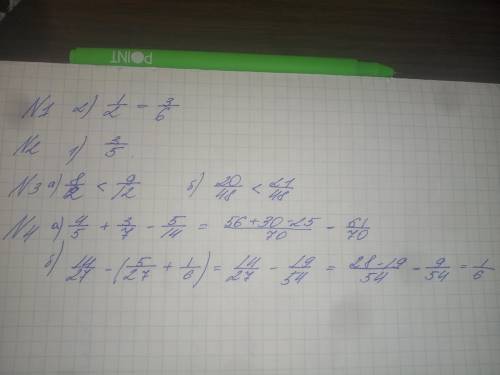 POINT
N1 2) 1/2 = 3/6
N2 1) 3/5.
N3 а) 8/12 < 9/12 б) 20/48 < 21/48
N4 а) 4/5 + 3/7 - 5/14 = 56+30-25/70 - 61/70
б) 14/27 - (5/27 + 1/6) = 14/27 - 19/54 = 28-19/54 - 9/54 = 1/6